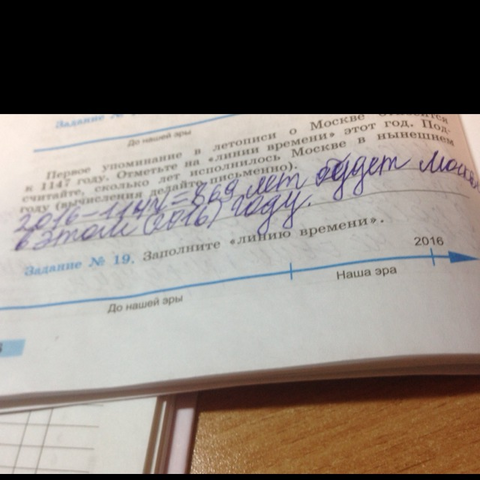 Задание №
До нашей эры
Первое упоминание в летописи о Москве относится
к 1147 году. Отметьте на «линии времени» этот год. Под-
считайте, сколько лет исполнилось Москве в нынешнем
году (вычисления делайте письменно).
2016-1147=869 лет будет Москве
в этом (2016) году.
Задание № 19. Заполните «линию времени».
2016
До нашей эры
Наша эра